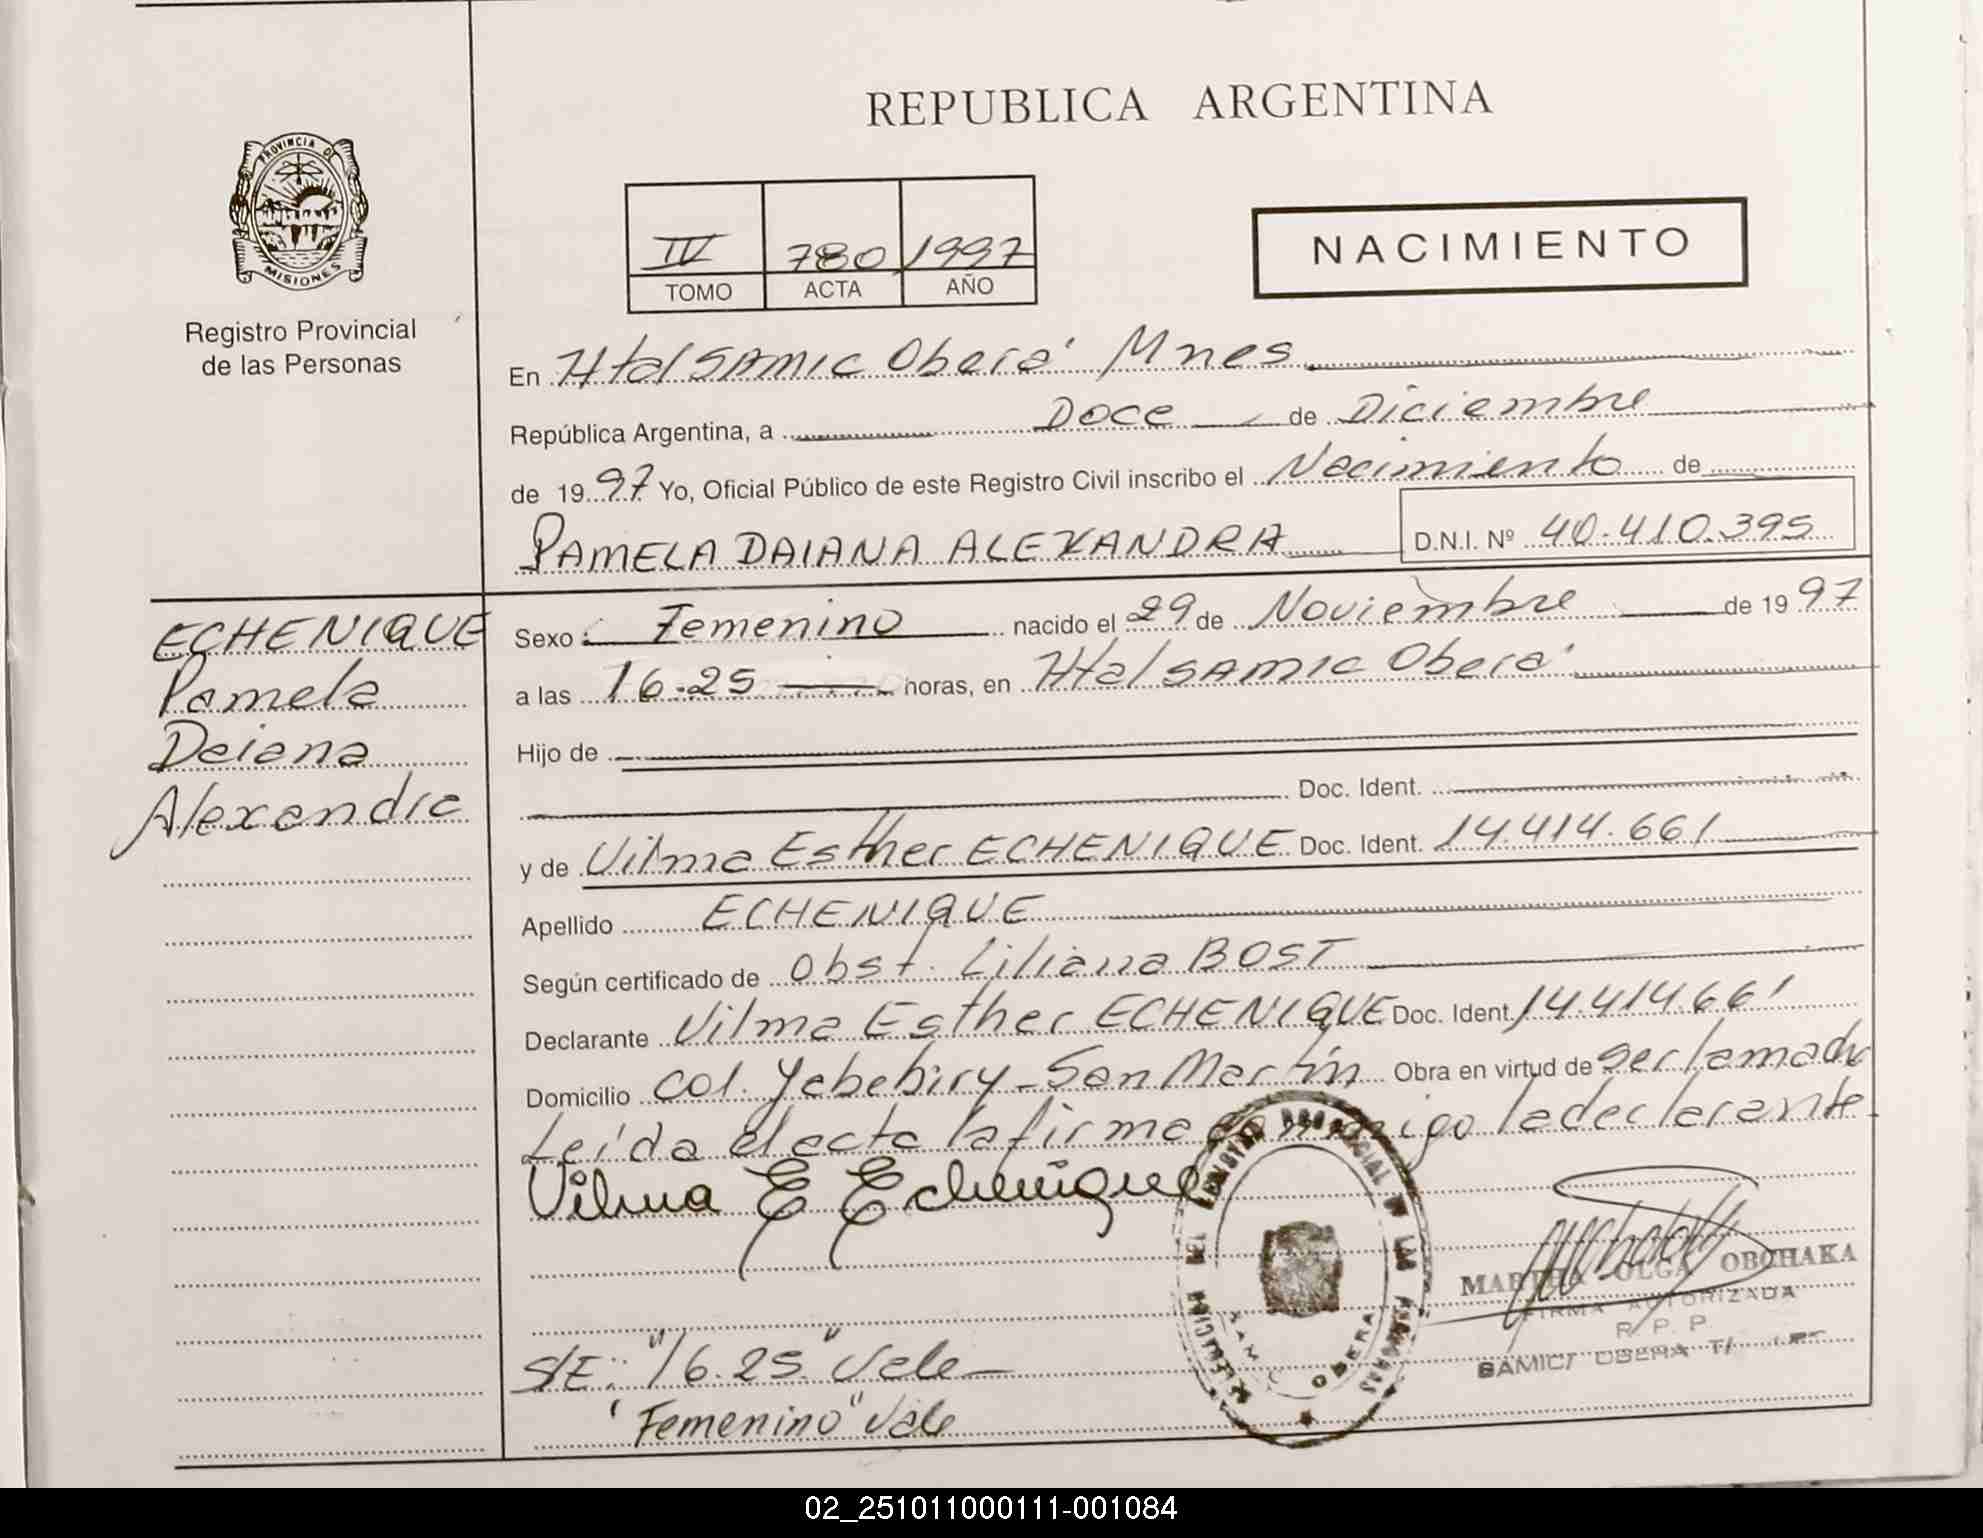 REPUBLICA ARGENTINA
PROVINCIA DE
MISIONES
Registro Provincial
de las Personas
IV 780 1997
TOMO ACTA AÑO
NACIMIENTO
En Htal SAMIC Oberá Mnes
República Argentina, a Doce de Diciembre
de 19 97 Yo, Oficial Público de este Registro Civil inscribo el Nacimiento de
PAMELA DAIANA ALEXANDRA D.N.I. Nº 40.410.395
ECHENIQUE
Pamela
Daiana
Alexandra
Sexo: Femenino nacido el 29 de Noviembre de 19 97
a las 16.25 horas, en Htal SAMIC Oberá
Hijo de
Doc. Ident.
y de Vilma Esther ECHENIQUE Doc. Ident. 14.414.661
Apellido ECHENIQUE
Según certificado de Obst. Liliana BOST
Declarante Vilma Esther ECHENIQUE Doc. Ident. 14.414.661
Domicilio Col. Yabebiry - San Martín Obra en virtud de ser la madre
Leída el acta la firma conmigo la declarante
Vilma E Echenique
REGISTRO PROVINCIAL DE LAS PERSONAS
OBERA
MARTHA OLGA OBUHAKA
FIRMA AUTORIZADA
R. P. P.
SAMIC OBERA
S/E: "16.25" Vale
"Femenino" Vale
02_251011000111-001084